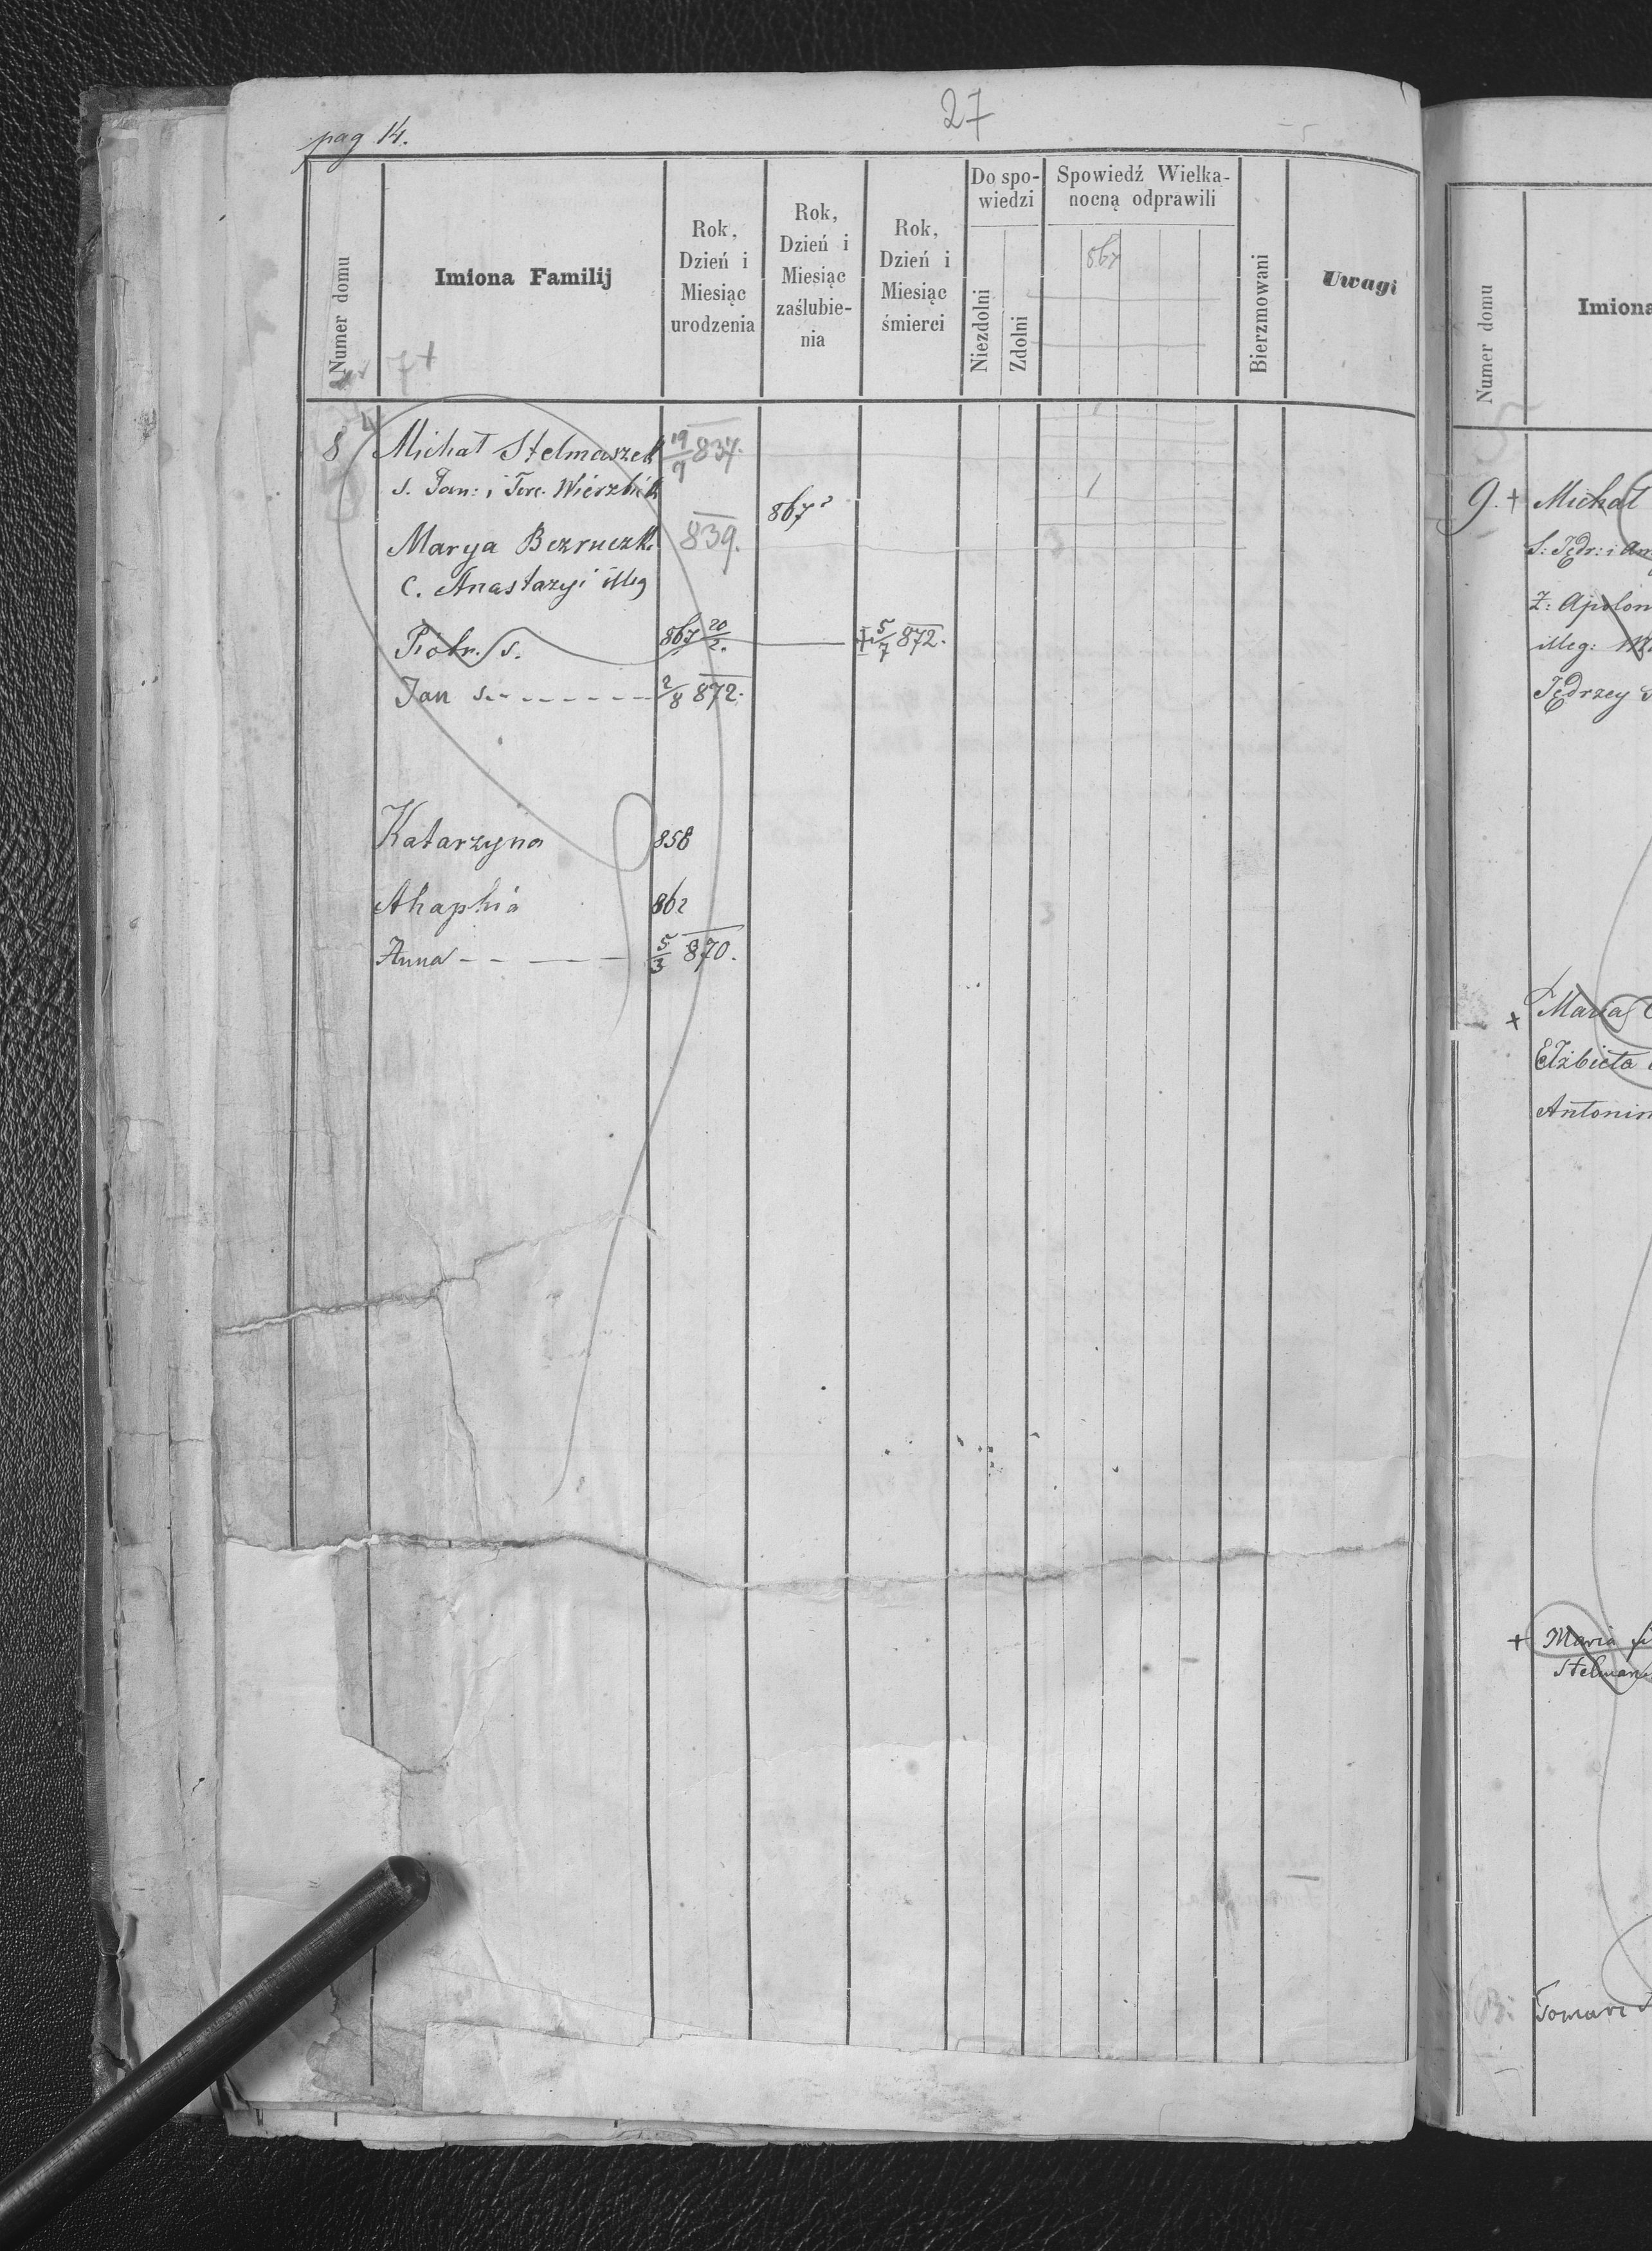 27
pag 14.
Numer domu
Imiona Familij
Rok,
Dzień i
Miesiąc
urodzenia
Rok,
Dzień i
Miesiąc
zaślubie-
nia
Rok,
Dzień i
Miesiąc
śmierci
Do spo-
wiedzi
Niezdolni
Zdolni
Spowiedź Wielka-
nocną odprawili
867
Bierzmowani
Uwagi
7+
8 Michał Stelmaszek 19/7 837.
s. Jan: i Tere. Wierzbick
867
Marya Bezruczk. 839.
c. Anastazyi illeg
Piotr. s. 867 20/2. + 5/7 872.
Jan s. - - - - - - 2/8 872.
Katarzyna 858
Ahaphia 862
Anna - - - - - 5/3 870.
Numer domu
Imiona
9. + Michał
S: Jędr: i An
Ż: Apolon
illeg:
Jędrzey
+ Maria
Elżbieta
Antonin
+ Maria
Stelmar